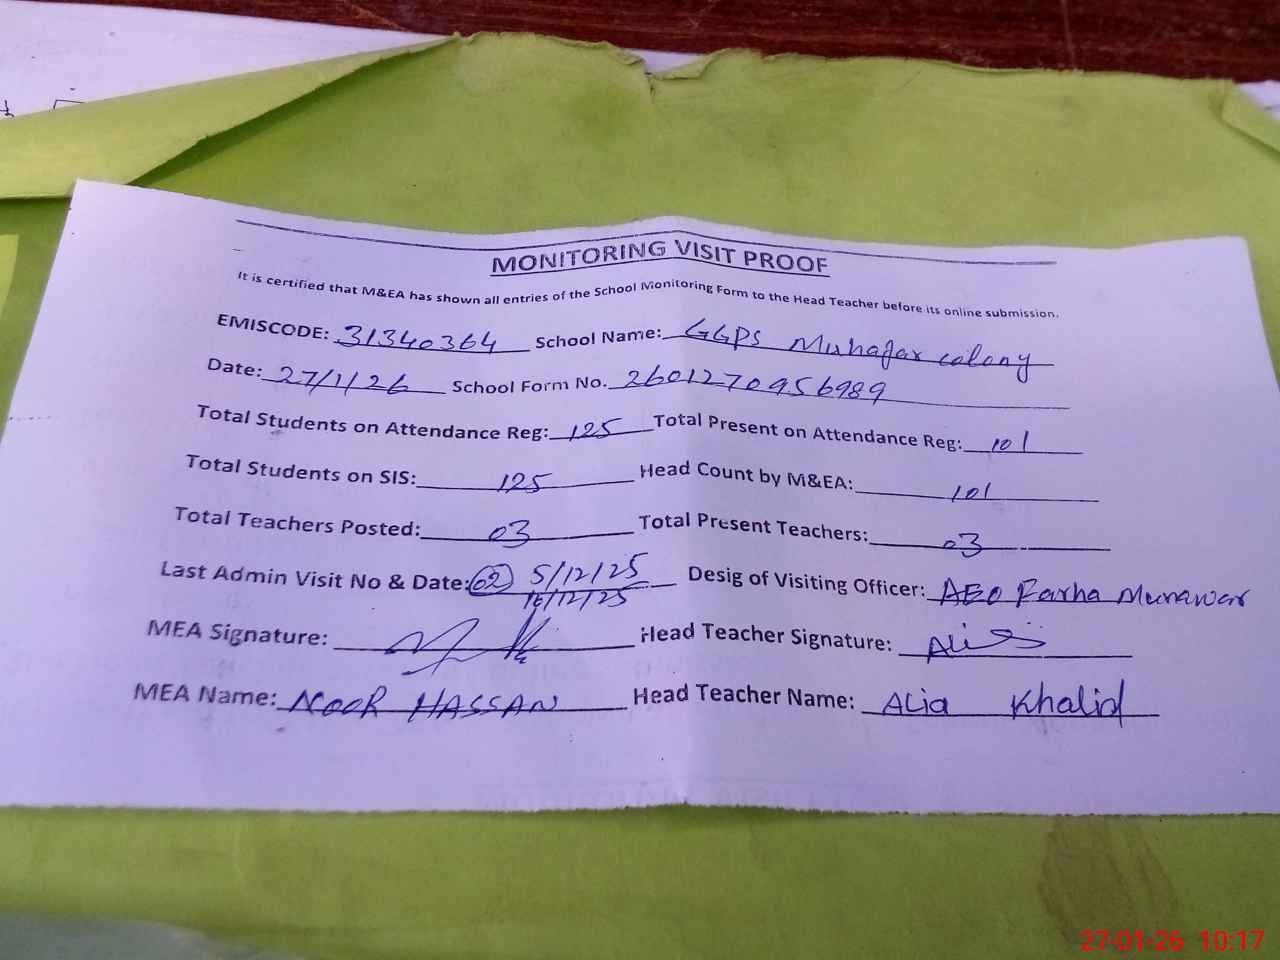 MONITORING VISIT PROOF
It is certified that M&EA has shown all entries of the School Monitoring Form to the Head Teacher before its online submission.
EMISCODE: 31340364 School Name: GGPS Muhajar colony
Date: 27/1/26 School Form No. 2601270956989
Total Students on Attendance Reg: 125 Total Present on Attendance Reg: 101
Total Students on SIS: 125 Head Count by M&EA: 101
Total Teachers Posted: 03 Total Present Teachers: 03
Last Admin Visit No & Date: 02 5/12/25 Desig of Visiting Officer: AEO Farha Munawar
16/12/25
MEA Signature: Head Teacher Signature:
MEA Name: NOOR HASSAN Head Teacher Name: ALia Khalid
27-01-26 10:17